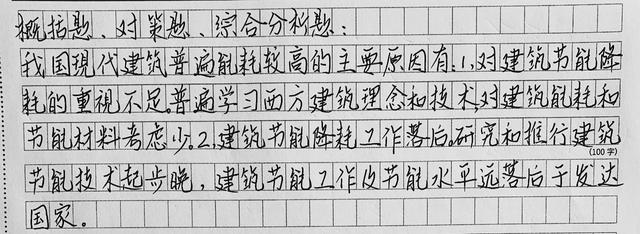 概括题、对策题、综合分析题：
我国现代建筑普遍能耗较高的主要原因有:1,对建筑节能降
耗的重视不足普遍学习西方建筑理念和技术,对建筑能耗和
节能材料考虑少。2,建筑节能降耗工作落后。研究和推行建筑
(100字)
节能技术起步晚，建筑节能工作及节能水平远落后于发达
国家。